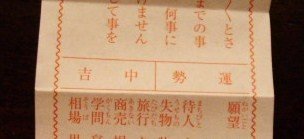 くとさ
までの事
何事に
けません
して事を
運勢
中吉
願望
待人
失物
旅行
商売
学問
相場